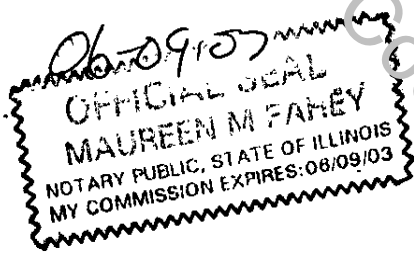 06-09-03
OFFICIAL SEAL
MAUREEN M FAHEY
NOTARY PUBLIC, STATE OF ILLINOIS
MY COMMISSION EXPIRES:06/09/03